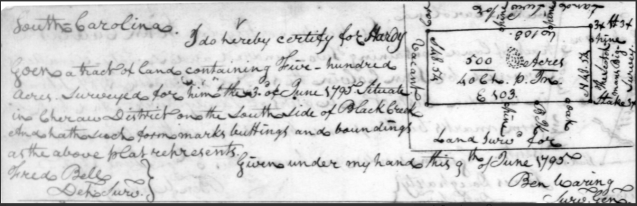 South Carolina.
I do hereby certify for Hardy
Goen a tract of land containing Five-hundred
Acres. Surveyed for him the 3. of June 1795 Situate
in Cheraw District on the South Side of Black Creek
And hath such form marks buttings and boundings
as the above plat represents.
Given under my hand this 9th of June 1795.
Fred Bell
Dep. Surv.
Ben Waring
Surv. Gen.
500 Acres
40 Ch. p. In
E 103.
Vacant
Pine
Stake
Land Surv. for